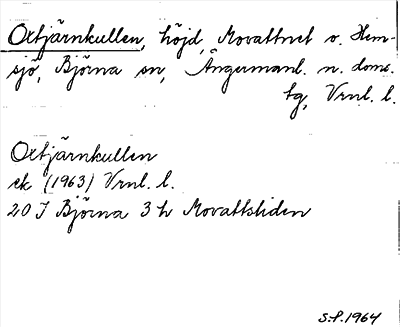 Oxtjärnkullen, höjd, Movattnet o. Hem-
sjö, Björna sn, Ångermanl. n. doms.
tg, Vrnl. l.
Oxtjärnkullen
ek (1963) Vrnl. l.
20 J Björna 3 h Movattsliden
S.P. 1964